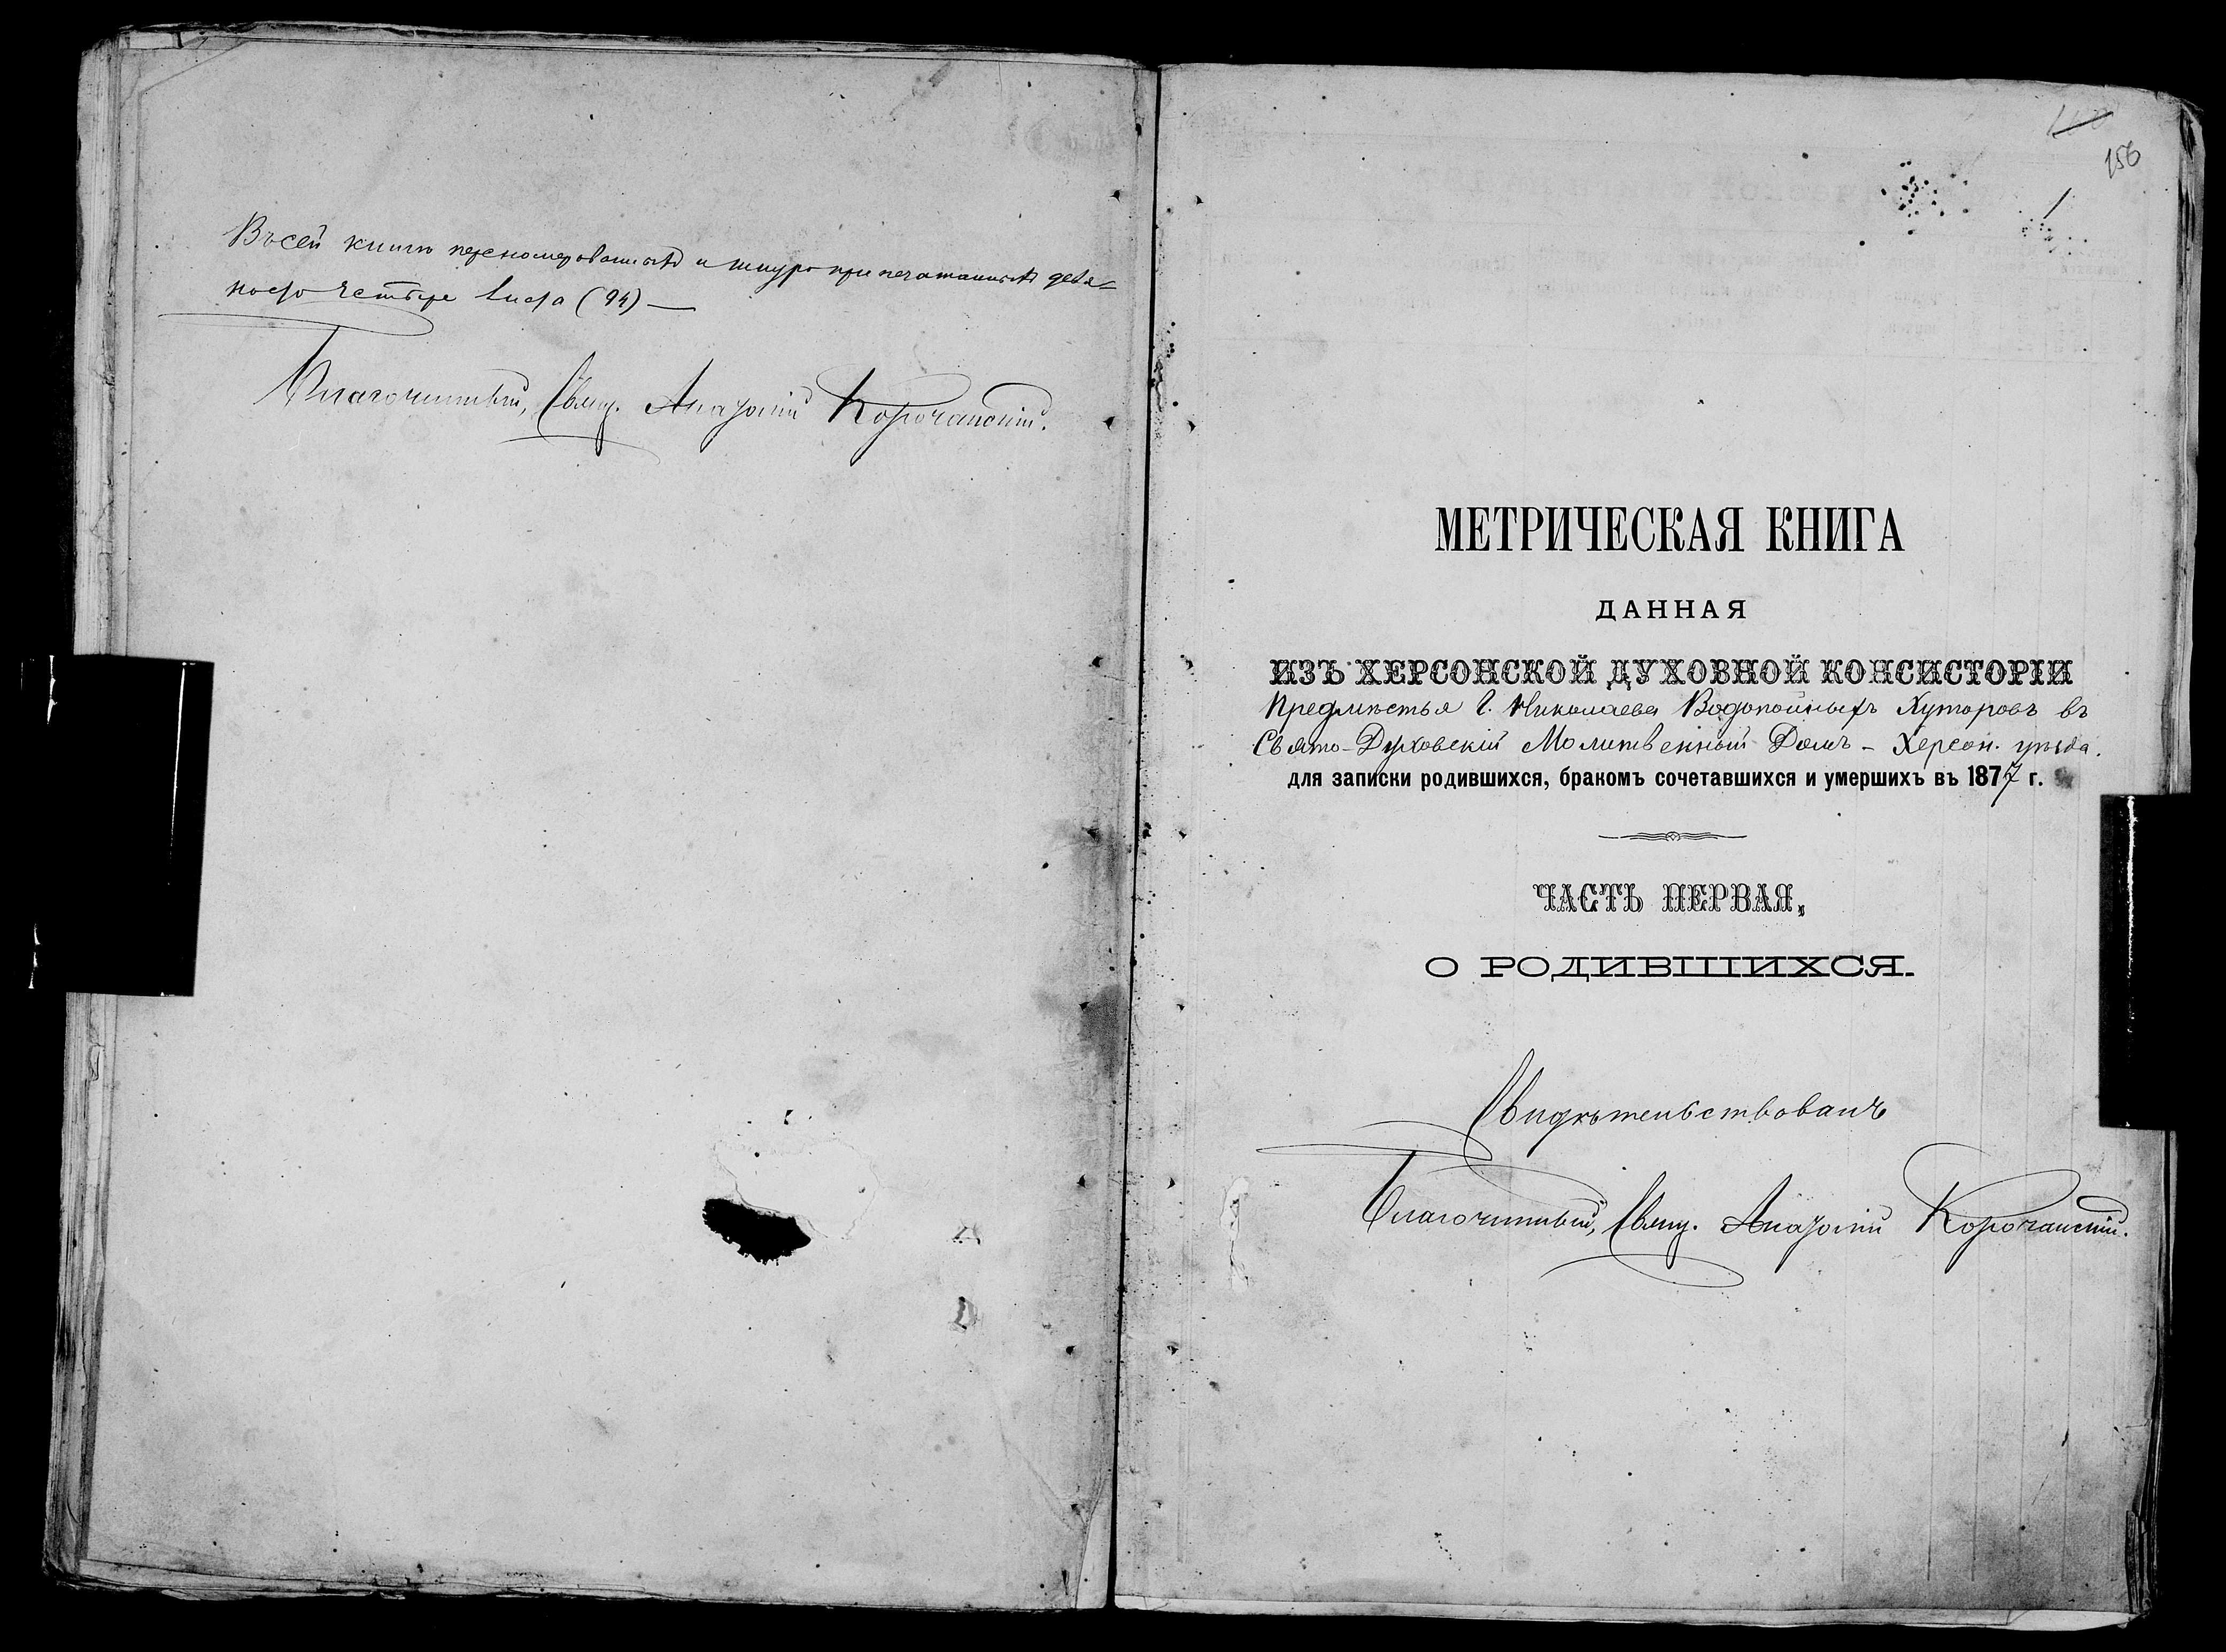 Въ сей книгѣ перенумерованныхъ и шнуроприпечатанныхъ девя=
носто четыре листа (94) —
Благочинный, Свящ. Анатолій Корочанскій.
156
1
МЕТРИЧЕСКАЯ КНИГА
ДАННАЯ
ИЗЪ ХЕРСОНСКОЙ ДУХОВНОЙ КОНСИСТОРІИ
Предмѣстья г. Николаева Водопойныхъ Хуторовъ въ
Свято-Духовскій Молитвенный Домъ - Херсон. уѣзда.
для записки родившихся, бракомъ сочетавшихся и умершихъ въ 1877 г.
ЧАСТЬ ПЕРВАЯ,
О РОДИВШИХСЯ.
Свидѣтельствовалъ
Благочинный, Свящ. Анатолій Корочанскій.